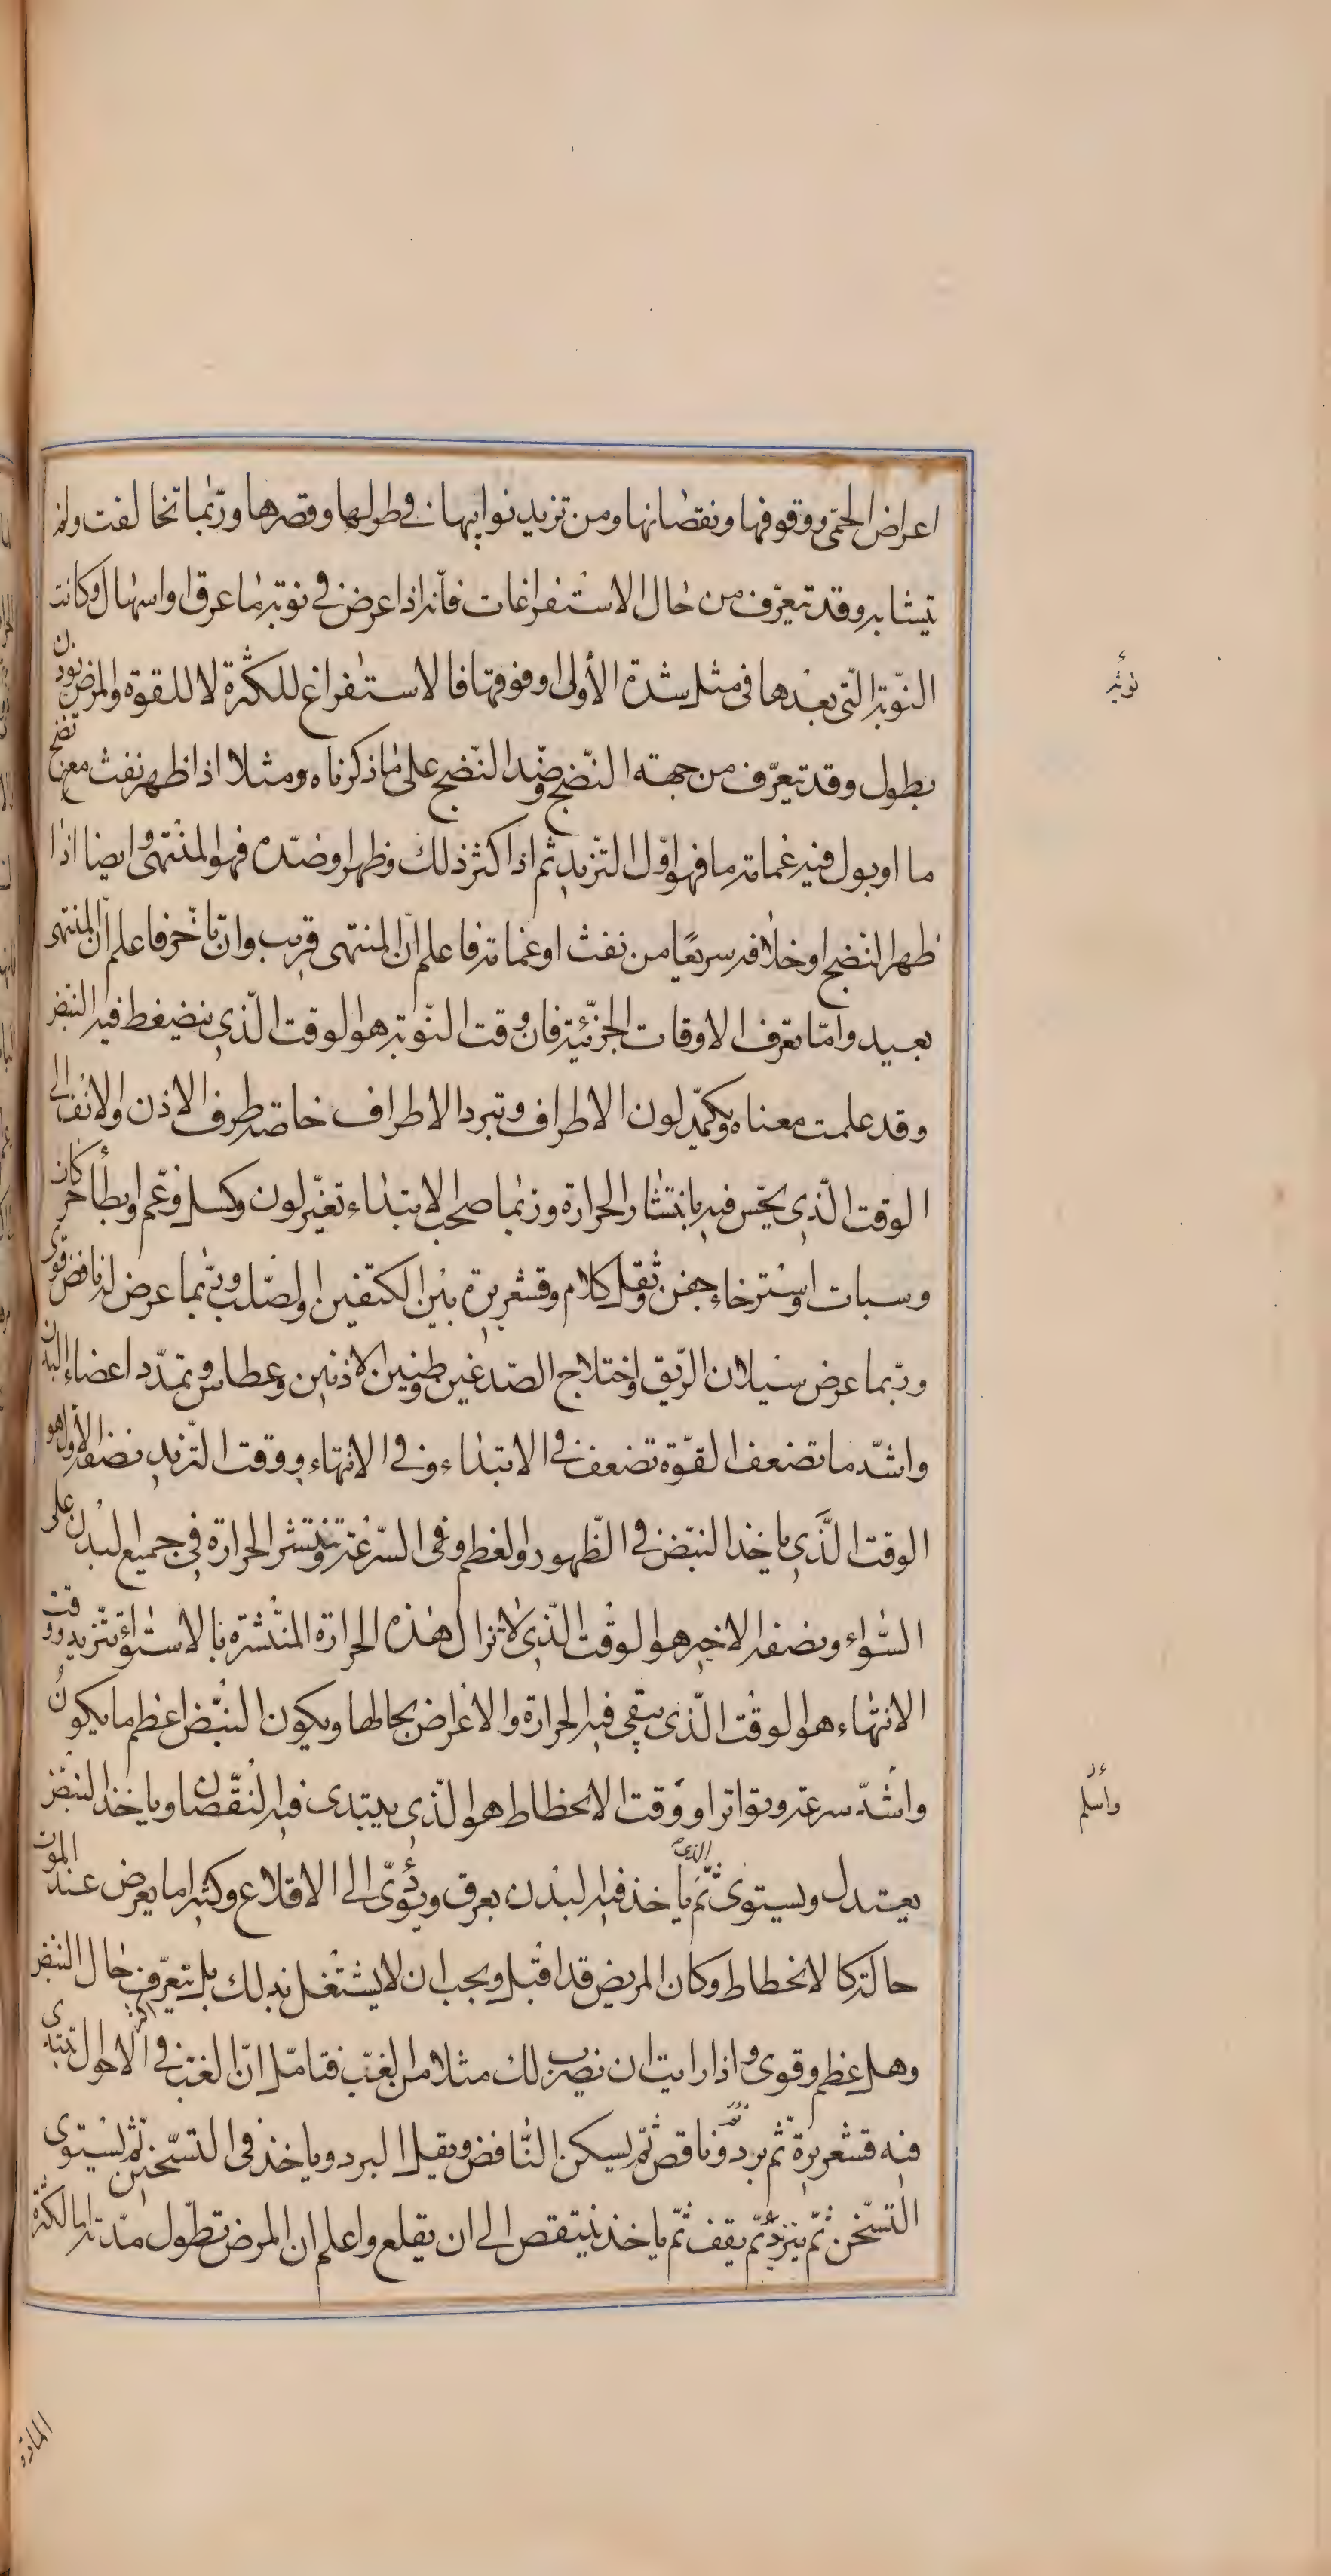 اعراض الحمّى ووقوفها ونقصانها ومن تزيد نوايبها في طولها وقصرها وربّما تخالفت ولم
تيشابه وقد تتعرّف من حال الاستفراغات فأنه اذا عرض في نوبة ما عرق او اسهال وكانت
النّوبة الّتى بعدها فى مثل شدة الأولى او فوقها فالاستفراغ للكثرة لا للقوة والمرض يوذن
بطول وقد تتعرّف من جهة النّضج وضّد النضج على ما ذكرناه ومثلا اذا ظهر نفث مع نضج
ما او بول فيه غمامة ما فهو اوّل التّزيد ثم اذا كثر ذلك وظهر او ضدّه فهو المنتهى وايضا اذا
ظهر النّضج او خلافه سريعًا من نفث او غمامة فاعلم انّ المنتهى قريب وان تاخّر فاعلم انّ المنتهى
بعيد وامّا تعرف الاوقات الجزئيّة فان وقت النّوبة هو الوقت الّذي ينضغط فيه النبض
وقد علمت معناه ويكمّد لون الاطراف وتبرد الاطراف خاصة طرف الاذن والانف الى
الوقت الّذي يحّس فيه بانتشار الحرارة وربما صاحب الابتداء تغيّر لون وكسل وغّم وابطأ حركات
وسبات واسترخاء جفن وثقل كلام وقشعريرة بين الكتفين والصّلب وربّما عرض له نافض قوى
وربّما عرض سيلان الريّق واختلاج الصّدغين وطنين الاذنين وعطاس وتمدّد اعضاء البدن
واشّد ما تضعف القوّة تضعف في الابتداء وفي الانتهاء ووقت التّزيد نصفه الأول هو
الوقت الَّذي ياخذ النبّض في الظّهور والعظم وفى السّرعة وتنتشر الحرارة في جميع البدن على
السّواء ونصفه الاخير هو الوقت الّذى لا تزال هذه الحرارة المنتشرة بالاستواء تتزيد ووقت
الانتهاء هو الوقت الّذى يبقى فيه الحرارة والاعراض بحالها ويكون النبّض اعظم ما يكون
واشّد سرعة وتواترا ووقت الانحطاط هو الّذي يبتدى فيه النّقصان وياخذ النبض
يعتدل ويستوى ثّم الذى ياخذ فيه البدن بعرق ويؤدّى الى الاقلاع وكثيرا ما يعرض عند الموت
حالة كالانحطاط وكان المريض قد اقبل ويجب ان لا يشتغل بذلك بل يتعرّف حال النبض
وهل عظم وقوى واذا رايت ان نضرب لك مثلا من الغبّ فتامّل انّ الغبّ في اكثر الاحوال تبتدى
فيه قشعريرة ثّم برد ونافض ثّم يسكن النّافض ويقل البرد وياخذ فى التسّخين ثّم يستوى
التسّخن ثّم يتزيد ثّم يقف ثّم ياخذ ينتقص الى ان يقلع واعلم ان المرض تطول مدّته امّا لكثرة
المادة
نوبة
واسلم